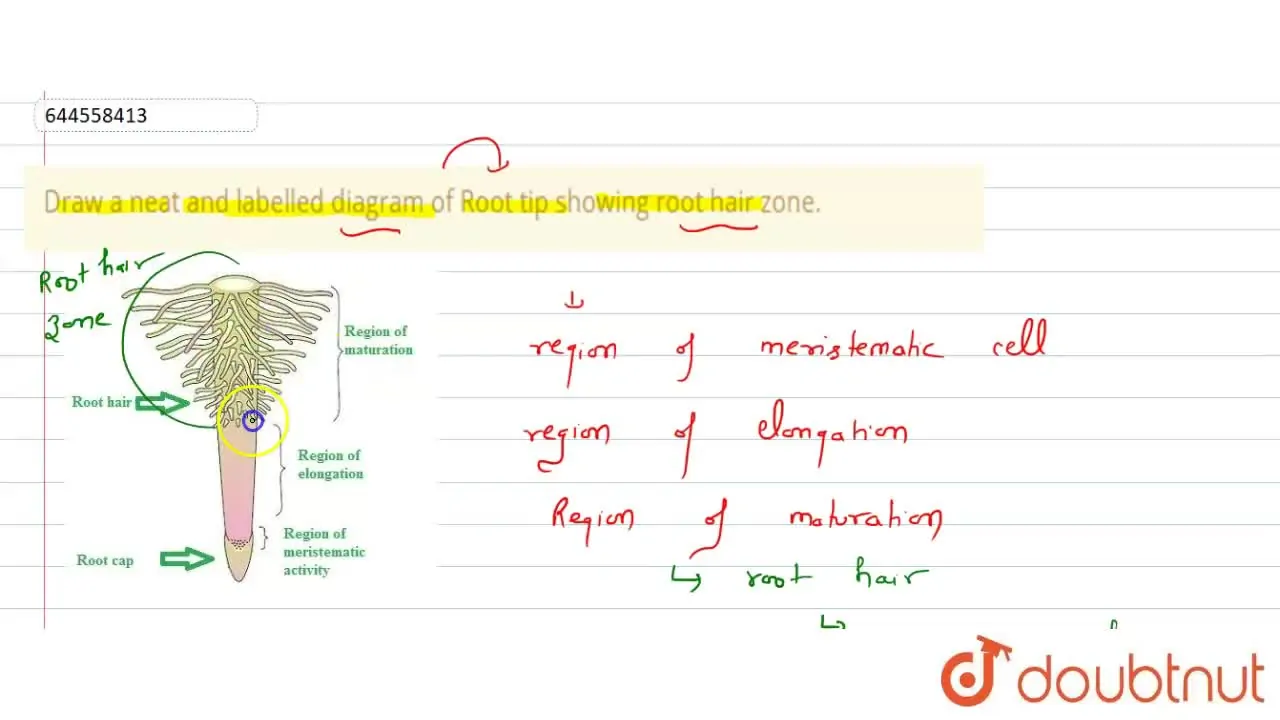 644558413
Draw a neat and labelled diagram of Root tip showing root hair zone.
Root hair
zone
Region of
maturation
Root hair
Region of
elongation
Region of
meristematic
activity
Root cap
region of meristematic cell
region of elongation
Region of maturation
root hair
doubtnut